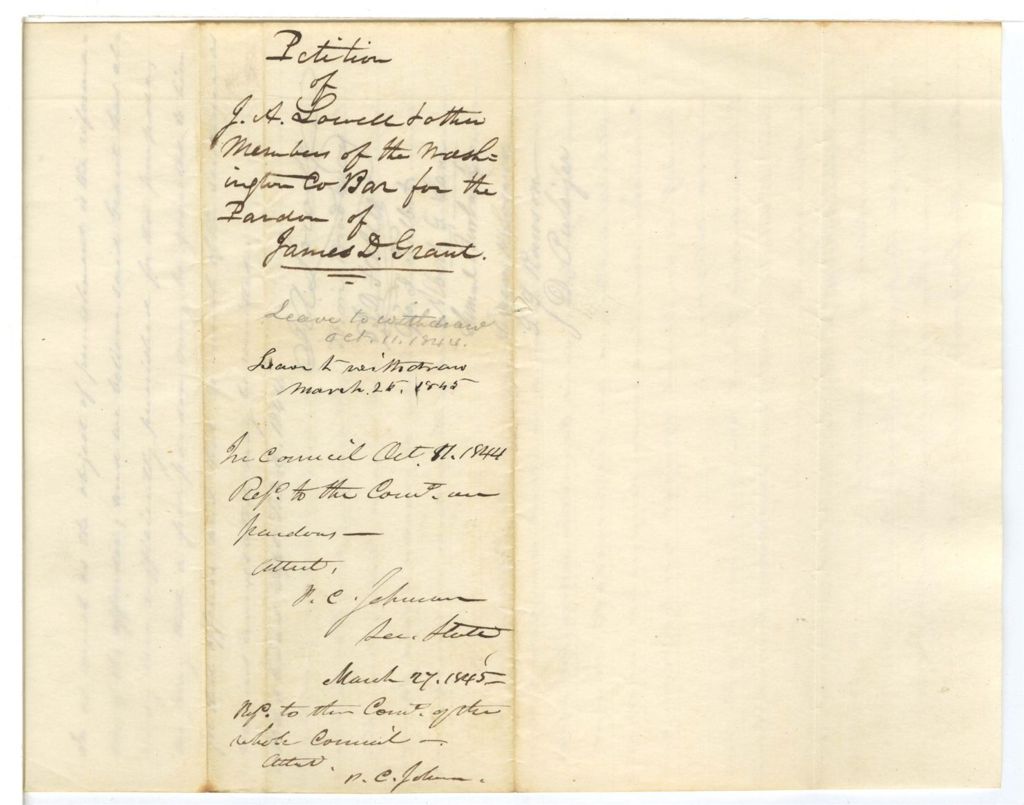 Petition
of
J. A. Lowell & other
Members of the Wash=
ington Co Bar for the
Pardon of
James D. Grant.
Leave to withdraw
Oct. 11. 1844.
Leave to withdraw
March. 25. 1845
In Council Oct. 11. 1844
Refd. to the Come. on
pardons—
Attest,
P. C. Johnson
Sec. State
March 27. 1845—
Refd. to the Come. of the
whole Council —.
Attest.
P. C. Johnson.